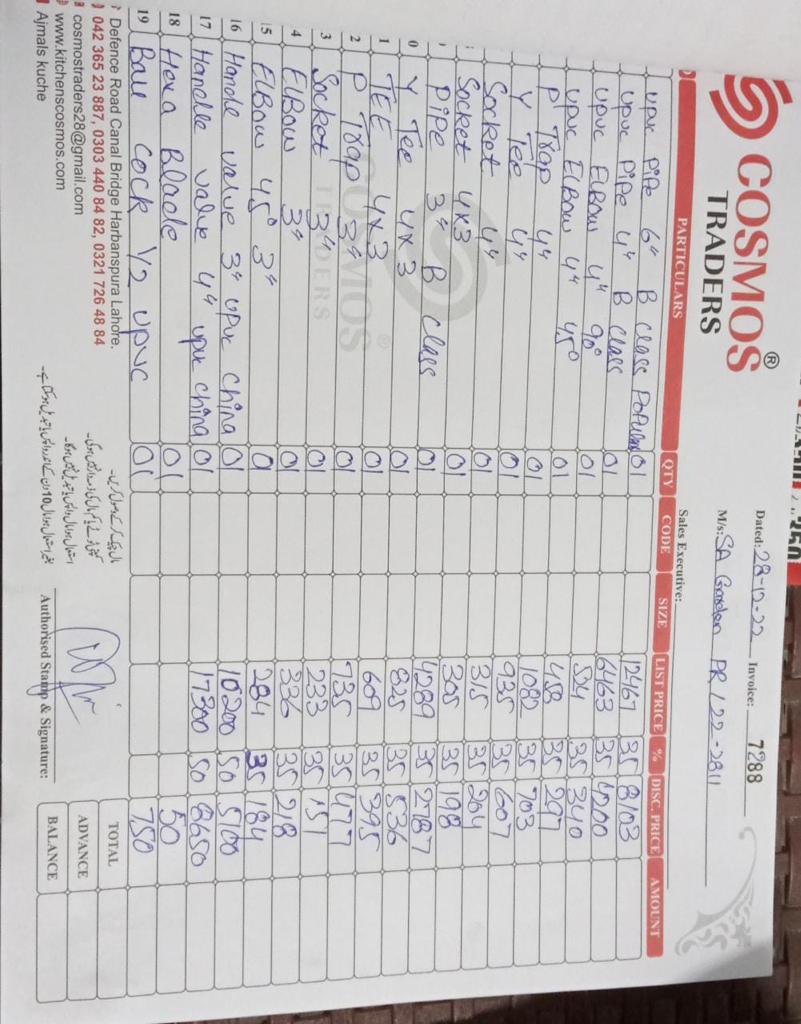 350 350
COSMOS ®
TRADERS
Dated: 28-12-22 Invoice: 7288
M/s: SA Garden PR / 22-2811
Sales Executive:
PARTICULARS QTY CODE SIZE LIST PRICE % DISC. PRICE AMOUNT
upvc PiPe 6" B class Popular 01 12467 35 8103
upvc PiPe 4" B class 01 6463 35 4200
upvc ElBow 4" 90° 01 524 35 340
upvc ElBow 4" 45° 01 458 35 297
P Trap 4" 01 1082 35 703
Y Tee 4" 01 935 35 607
Socket 4" 01 315 35 204
Socket 4x3 01 305 35 198
PiPe 3" B class 01 4289 35 2787
0 Y Tee 4x3 01 825 35 536
1 TEE 4x3 01 609 35 395
2 P Trap 3" 01 735 35 477
3 Socket 3" 01 233 35 151
4 ElBow 3" 01 336 35 218
15 ElBow 45° 3" 01 284 35 184
16 Handle value 3" upvc china 01 10200 50 5100
17 Handle value 4" upvc china 01 17300 50 8650
18 Hexa Blade 01 50
19 Ball cock 1/2 upvc 01 750
COSMOS ®
TRADERS
Defence Road Canal Bridge Harbanspura Lahore.
042 365 23 887, 0303 440 84 82, 0321 726 48 84
cosmostraders28@gmail.com
www.kitchenscosmos.com
Ajmals kuche
مال چیک کر کے وصول کریں۔
کمپنی ٹوٹے یا کم مال کی ذمہ دار نہیں ہوگی۔
استعمال ہوا مال واپس یا تبدیل نہیں ہوگا۔
بغیر استعمال ہوا مال 10 دن کے اندر واپس یا تبدیل ہوسکتا ہے۔
Authorised Stamp & Signature:
TOTAL
ADVANCE
BALANCE